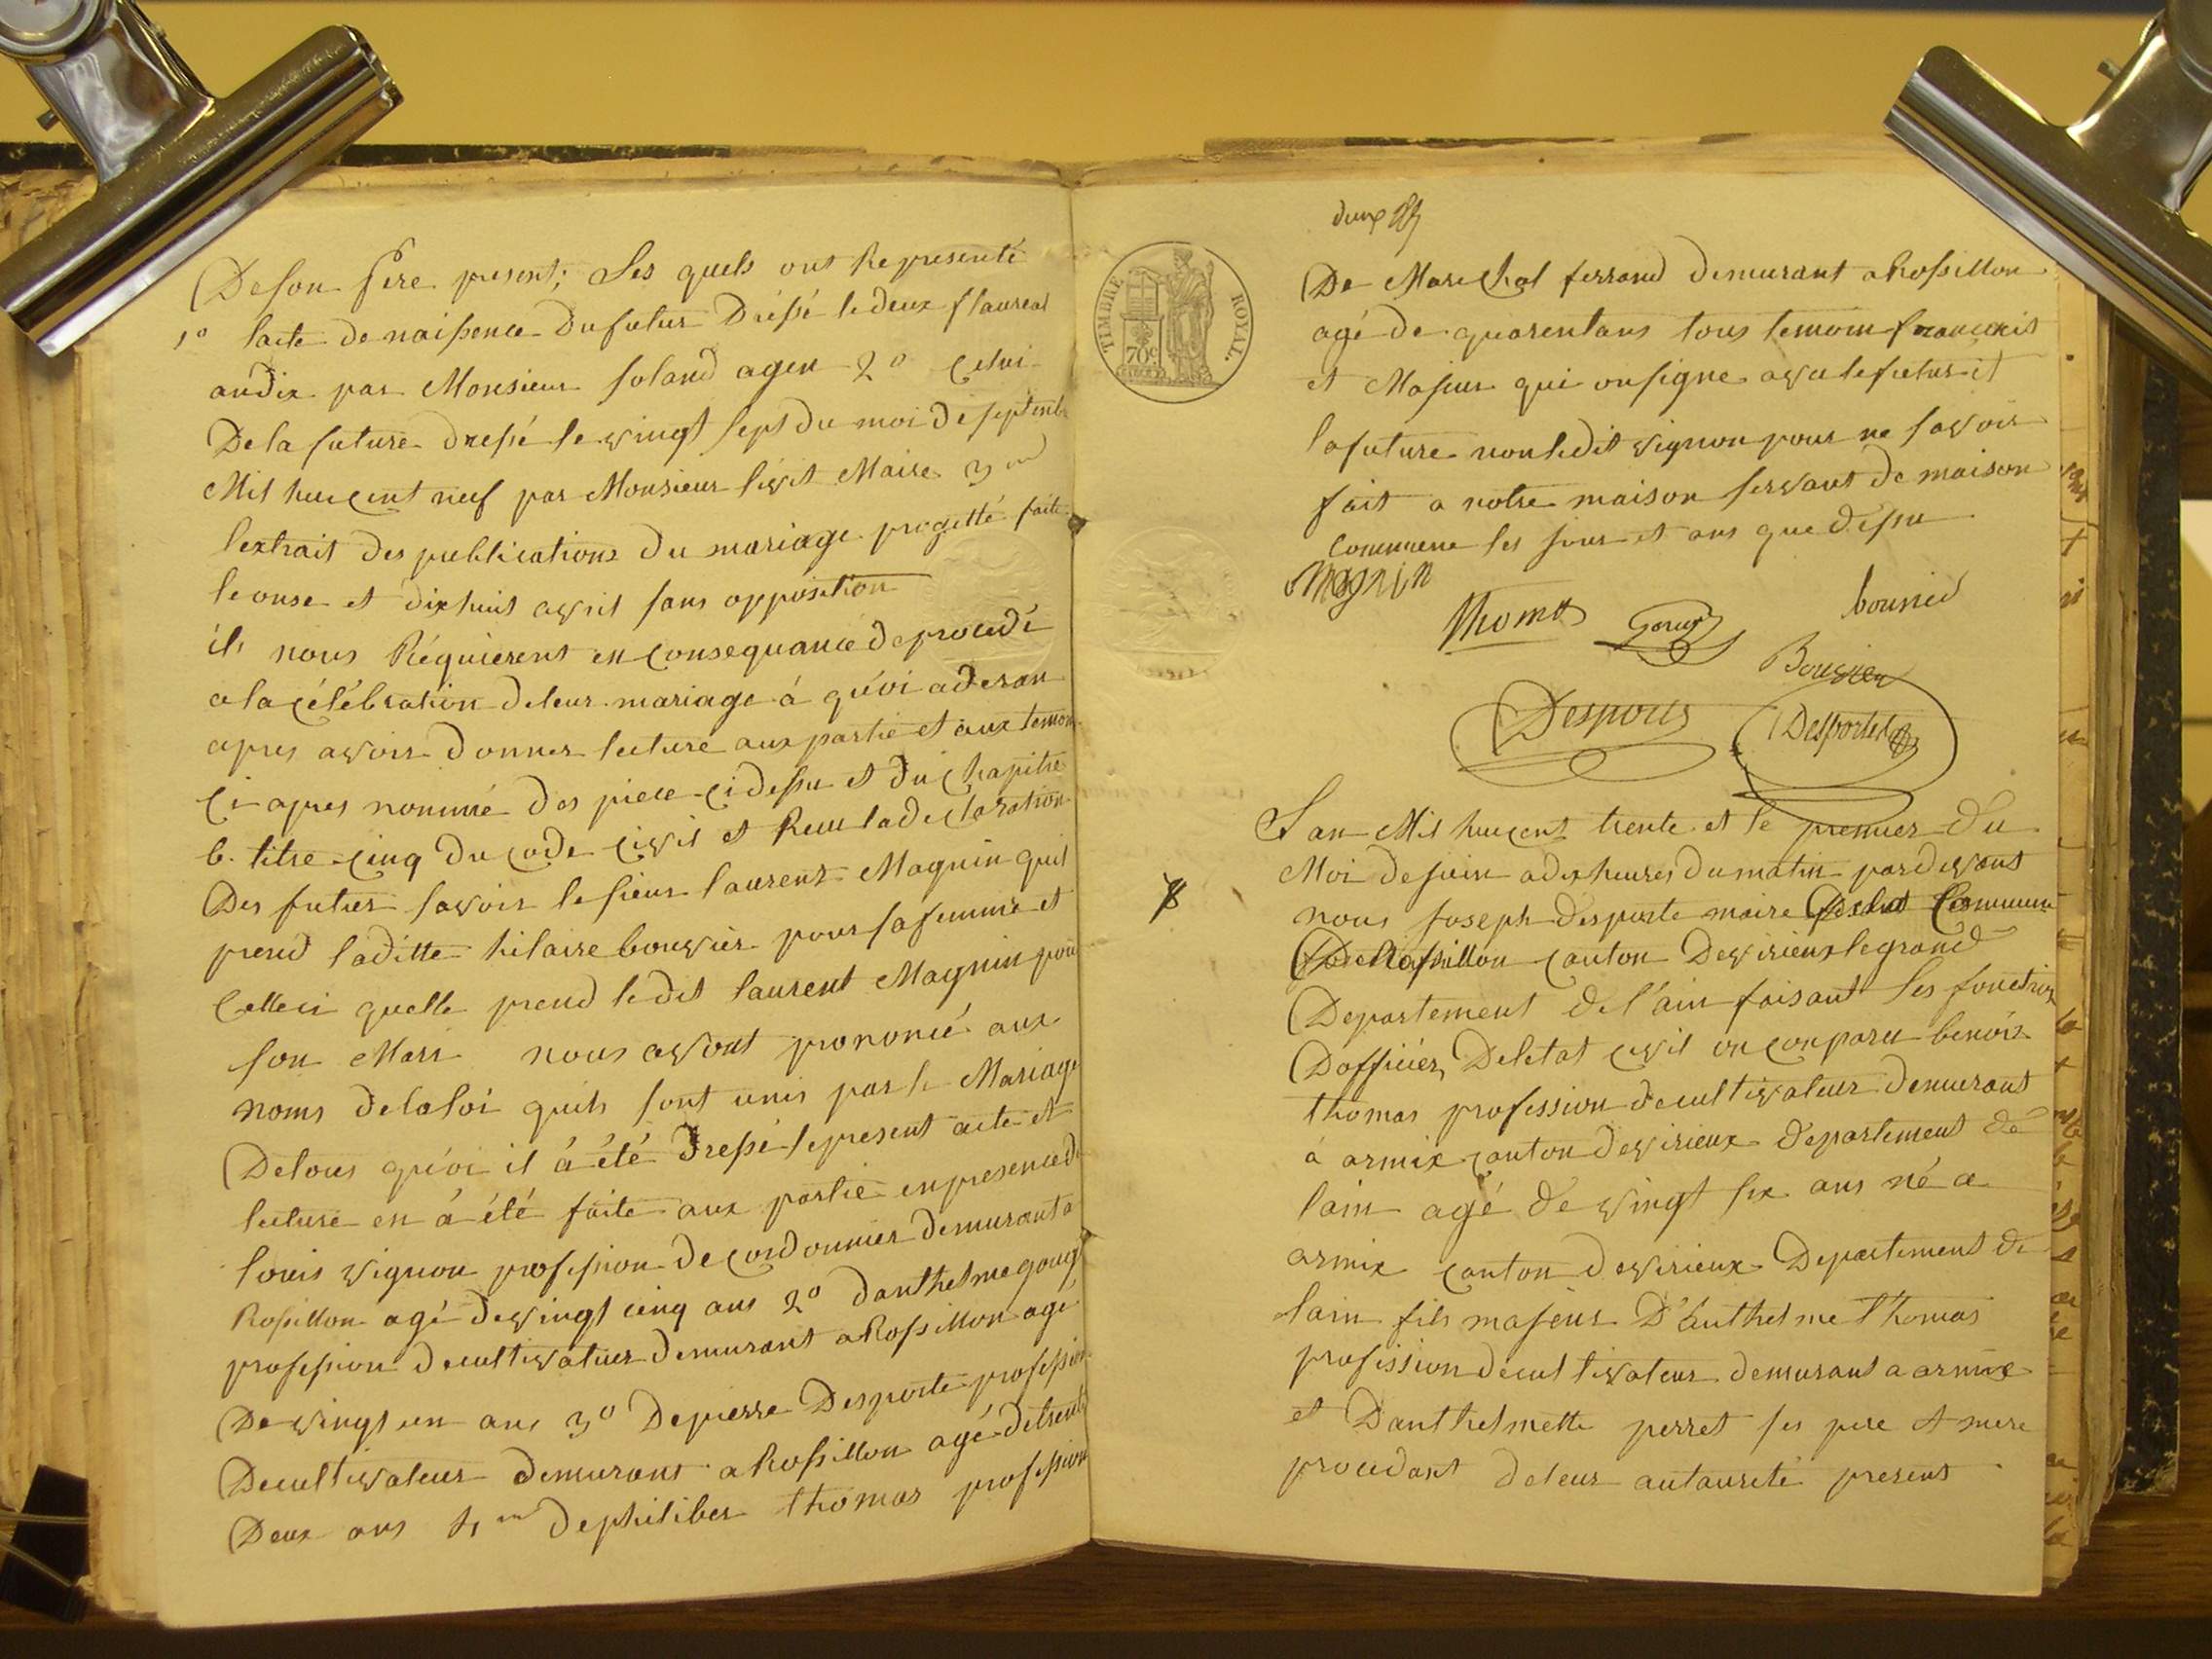 De son pere present; Les quels ont Representé
1o lacte de naissence du futur Dréssé le deux flaureal
andix par Monsieur Joland agen 2o Celui
De la future dressé le vingt sept du moi de septemb
Mil huicent neuf par Monsieur livit Maire 3me
lextrait des publications du mariage progetté faite
le onse et dix huit avril sans opposition
ils nous Réquierent en consequance de procedé
a la célébration de leur mariage á quéoi aderan
apres avoir donner lecture aux partie et aux temon
ci apres nommé des piece ci dessu et du chapitre
6. titre cinq du code civil et Recu la declaration
Des futurs savoir le sieur laurent Magnin quil
prend laditte hilaire bouvier pour sa femme et
Celle ci quelle prend ledit laurent Magnin pour
son Mari nous avont prononcé aux
noms de la loi quils sont unis par le Mariage
De tous quéoi il á été dressé le present acte et
lecture en á été faite aux partie en presence de
louis vignon profession de cordonnier demurant a
Rossillon agé de vingt cinq ans 2o danthelme gouj
profession de cultivatuer demurant a Rossillon agé
De vingt un ans 3o De pierre Desporte profession
De cultivateur demurant a Rossillon agé de trente
Deux ans 4me de philiber thomas profession
TIMBRE ROYAL.
70c
De Marechal ferrand demurant a Rossillon
agé de quarentans tous temoin francais
et Majeur qui on signe avec le futur et
la future non ledit vignon pour ne savoir
fait a notre maison servant de maison
commune les jour et ans que dessu
Magnin
Thomas
bouvier
Bouvier
Desporte
Desportes
Lan Mil huicent trente et le premier du
Moi de juin a dix heures du matin par devant
8 nous joseph desporte maire Commune
De Rossillon canton De virieux le grand
Departement de l'ain faisant les fonction
Dofficier De letat civil on conparu benoit
thomas profession de cultivateur demurant
á armix canton de virieux departement de
lain agé de vingt six ans né a
armix canton de virieux Departement de
lain fils majeur D'anthelme thomas
profission de cultivateur demurant a armix
et Danthelmette perret ses pere et mere
procedant de leur autaurité present